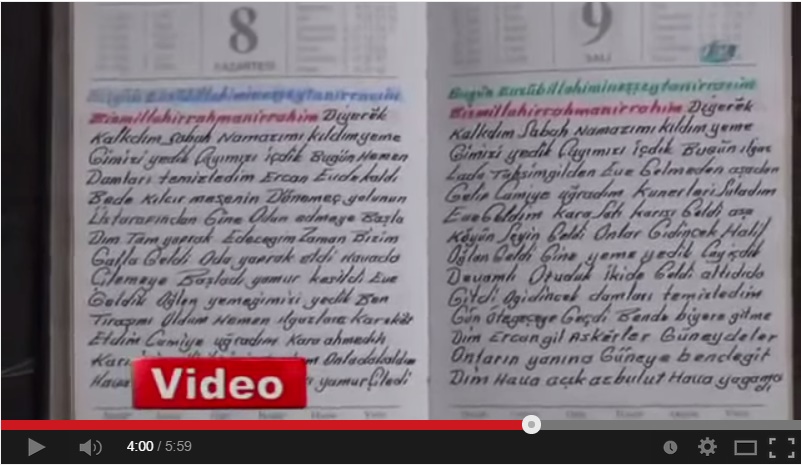 8
PAZARTESİ
Bugün Euzübillahimineşşeytanirracim
Bismillahirrahmanirrahim Diyerek
Kalkdım Sabah Namazımı kıldım yeme
Gimizi yedik Çayımızı içdik Bugün Hemen
Damları temizledim Ercan Evde kaldı
Bede Kılcır meşenin Dönemeç yolunun
Üstarafından Gine Odun edmeye Başla
Dım Tam yaprak Edeceğim Zaman Bizim
Galla Geldi Oda yaprak eldi Havada
Çilemeye Başladı yamur kesildi Eve
Geldik Öğlen yemeğimizi yedik Ben
Tıraşımı Oldum Hemen ılgazlara
Etdim Camiye uğradım Kara ahmedin
Onladakaldım
Hava yamur Çiledi
9
SALI
Bugün Euzübillahimineşşeytanirracim
Bismillahirrahmanirrahim Diyerek
Kalkdım Sabah Namazımı kıldım yeme
Gimizi yedik Çayımızı içdik Bugün ılgaz
Lada Eve Gelmeden aşadan
Gelip Camiye uğradım Suladım
Eve Geldim Kara Salı karşı Geldi aşa
Köyün Şeyin Geldi Onlar Gidinçek Halil
Oğlan Geldi Gine yeme yedik Çayiçdik
Devamlı Oturduk ikide Geldi altıdıda
Gitdi Ogidinçek damları temizledim
Gün Geçdi Bende biyere gitme
Dim Ercangil Askerler Güneydeler
Onların yanına Güneye bendegit
Dim Hava açık azbulut Hava yagamadı
Video
4:00 / 5:59